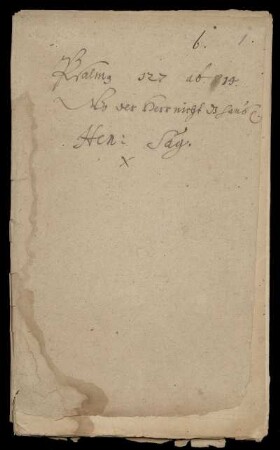 6. 1.
Psalmg 127 ab 14.
Wo der Herr nicht ds haus
Hen: Sag.
x